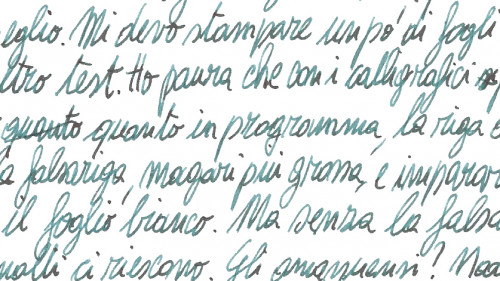 eglio. Mi devo stampare un pò di fogli
ltro test. Ho paura che con i calligrafici
quanto quanto in programma, la riga
la falsariga, magari più grossa, e imparar
il foglio bianco. Ma senza la falsa
ci riescono. Gli amanuensi?